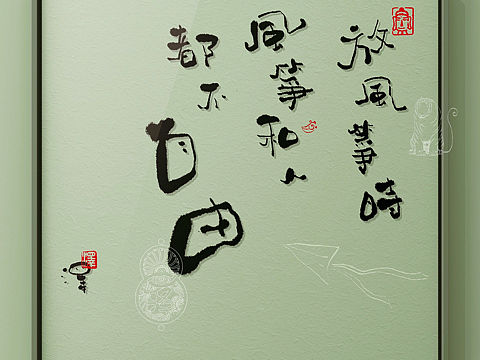 放風箏時
風箏和人
都不
自由